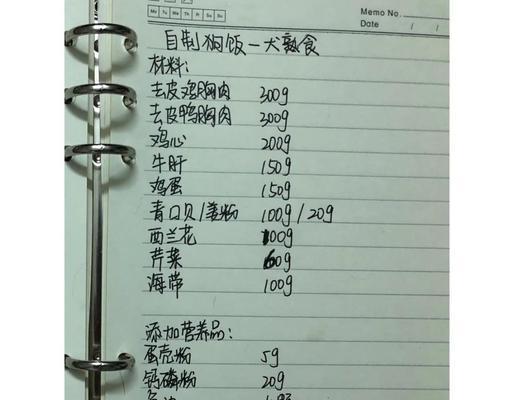 Memo No.
Mo Tu We Th Fr Sa Su
Date / /
自制狗饭一犬熟食
材料:
去皮鸡胸肉 300g
去皮鸭胸肉 300g
鸡心 200g
牛肝 150g
鸡蛋 150g
青口贝/姜粉 100g/20g
西兰花 100g
芹菜 60g
海带 100g
添加营养品:
蛋壳粉 5g
钙磷粉 20g